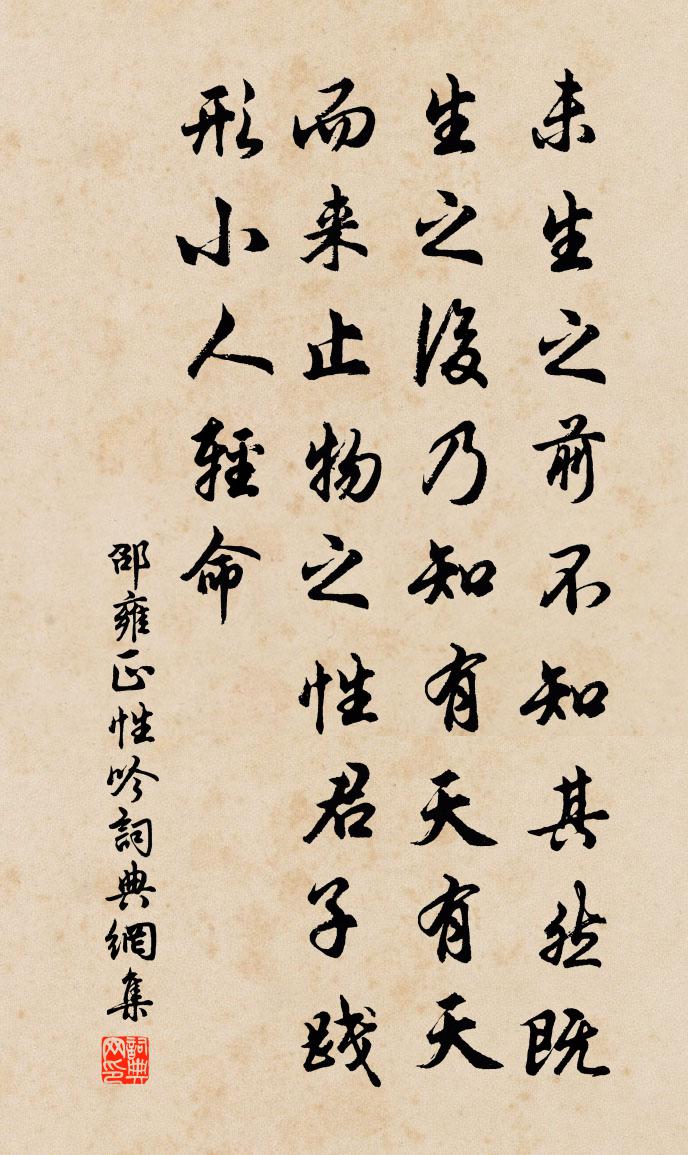 未生之前不知其然既
生之後乃知有天有天
而来止物之性君子踐
形小人輕命
邵雍正性吟詞典網集
詞典网印